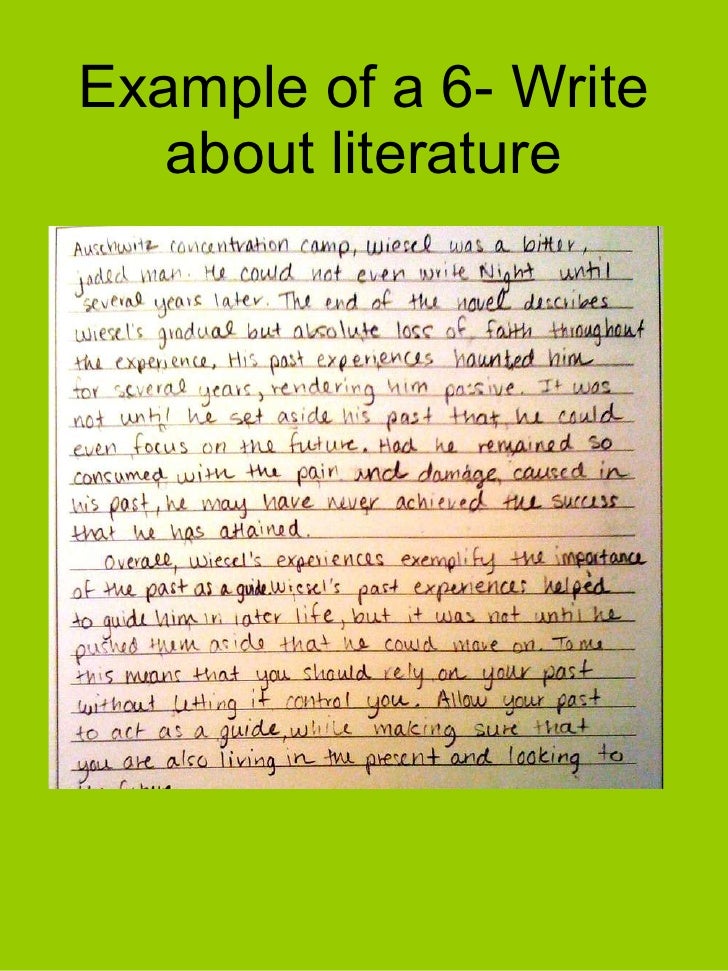 Example of a 6- Write
about literature
Auschwitz concentration camp, Wiesel was a bitter,
jaded man. He could not even write Night until
several years later. The end of the novel describes
Wiesel's gradual but absolute loss of faith throughout
the experience. His past experiences haunted him
for several years, rendering him passive. It was
not until he set aside his past that he could
even focus on the future. Had he remained so
consumed with the pain and damage caused in
his past, he may have never achieved the success
that he has attained.
Overall, Wiesel's experiences exemplify the importance
of the past as a guide. Wiesel's past experiences helped
to guide him in later life, but it was not until he
pushed them aside that he could move on. To me
this means that you should rely on your past
without letting it control you. Allow your past
to act as a guide, while making sure that
you are also living in the present and looking to
the future